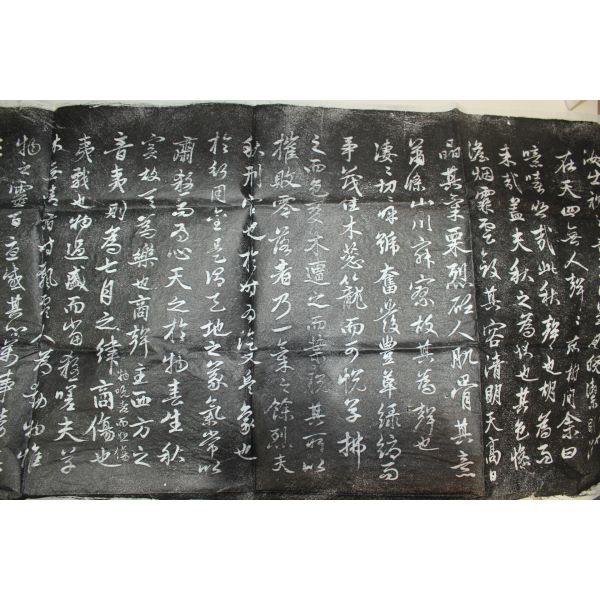 在天四無人聲々在樹間余曰
噫嘻悲哉此秋聲也胡為而
来哉盖夫秋之為状也其色惨
澹烟霏雲斂其容清明天高日
晶其氣栗烈砭人肌骨其意
蕭條山川寂寥故其為聲也
凄々切々呼號奮發豐草緑縟而
争茂佳木葱蘢而可悦草拂
之而色變木遭之而葉脱其所以
摧敗零落者乃一氣之餘烈夫
秋刑官也於時為陰又兵象也
於行用金是謂天地之義氣常以
肅殺而為心天之於物春生秋
實故其在樂也商聲主西方之
音夷則為七月之律商傷也
物既老而悲傷
夷戮也物過盛而當殺嗟夫草
木無情有時飄零人為動物惟
物之靈百憂感其心萬事勞其